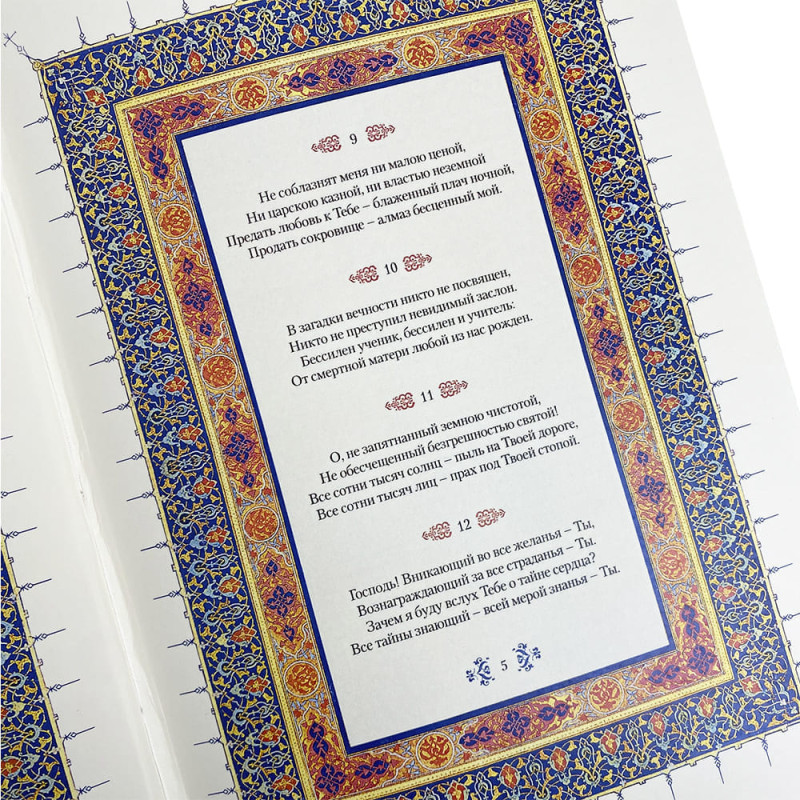 9
Не соблазнят меня ни малою ценой,
Ни царскою казной, ни властью неземной
Предать любовь к Тебе – блаженный плач ночной,
Продать сокровище – алмаз бесценный мой.
10
В загадки вечности никто не посвящен,
Никто не преступил невидимый заслон.
Бессилен ученик, бессилен и учитель:
От смертной матери любой из нас рожден.
11
О, не запятнанный земною чистотой,
Не обесчещенный безгрешностью святой!
Все сотни тысяч солнц – пыль на Твоей дороге,
Все сотни тысяч лиц – прах под Твоей стопой.
12
Господь! Вникающий во все желанья – Ты,
Вознаграждающий за все страданья – Ты.
Зачем я буду вслух Тебе о тайне сердца?
Все тайны знающий – всей мерой знанья – Ты.
5